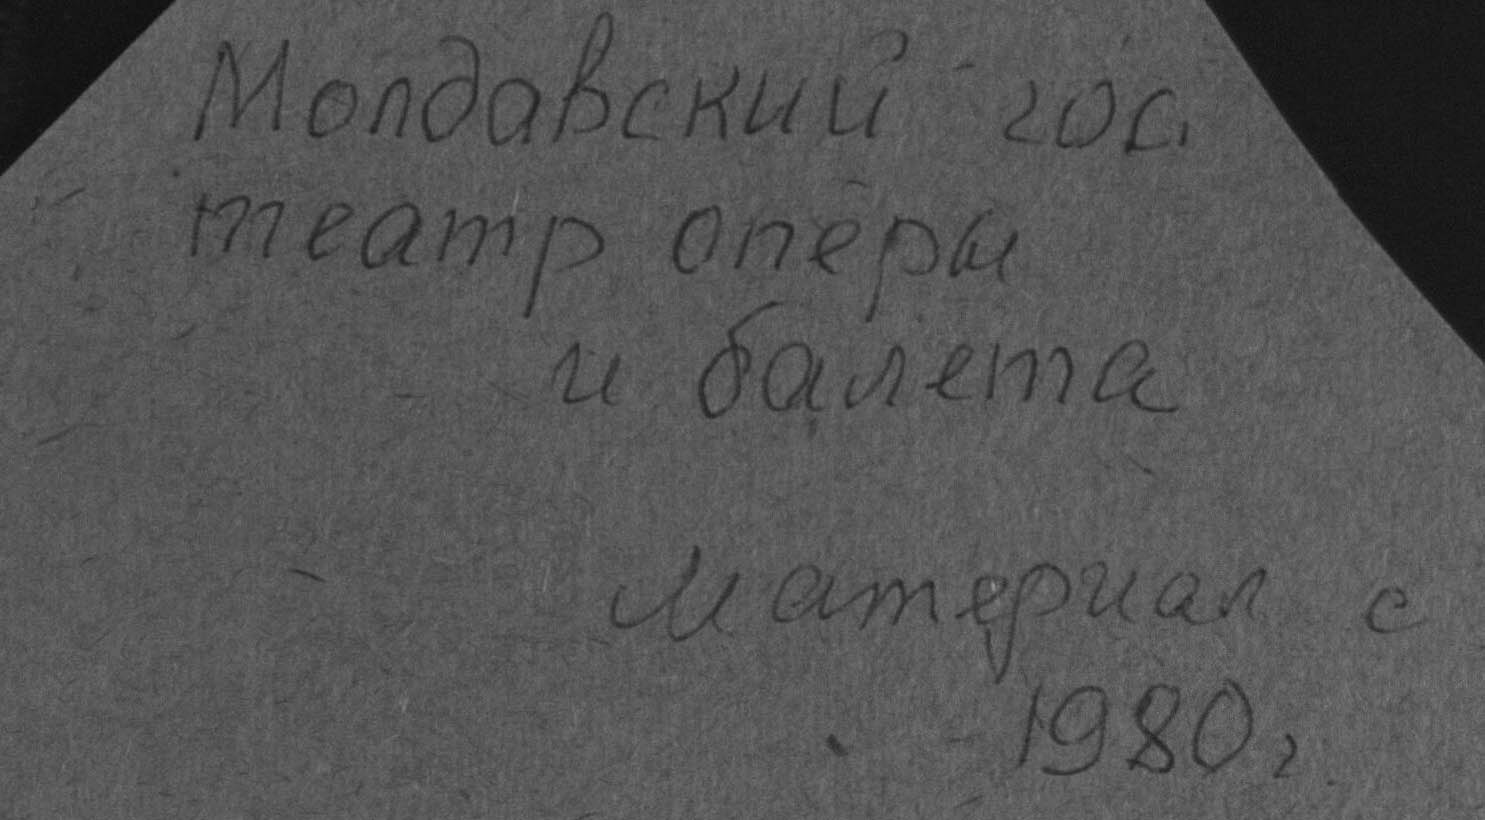 Молдавский гос.
театр оперы
и балета
Материал с
1980 г.